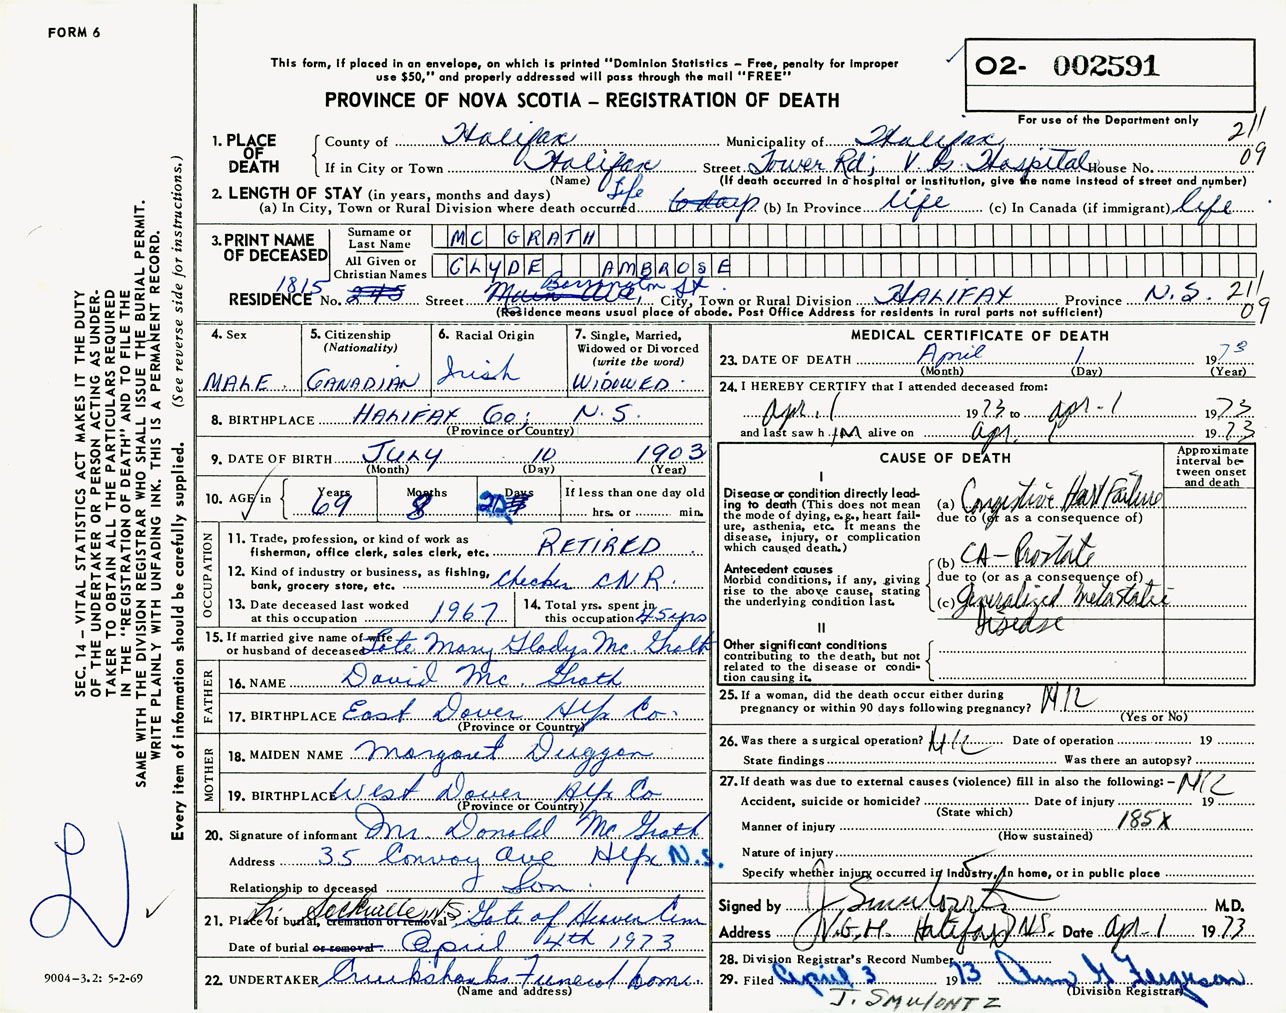 FORM 6
This form, if placed in an envelope, on which is printed "Dominion Statistics – Free, penalty for improper
use $50," and properly addressed will pass through the mail "FREE"
PROVINCE OF NOVA SCOTIA – REGISTRATION OF DEATH
02- 002591
For use of the Department only
211
09
1. PLACE OF DEATH
County of Halifax Municipality of Halifax
If in City or Town Halifax Street Tower Rd; V. G. Hospital House No.
(Name) (If death occurred in a hospital or institution, give the name instead of street and number)
2. LENGTH OF STAY (in years, months and days) life
(a) In City, Town or Rural Division where death occurred 6 days (b) In Province life (c) In Canada (if immigrant) life
3. PRINT NAME OF DECEASED
Surname or Last Name MC GRATH
All Given or Christian Names CLYDE AMBROSE
1815 Barrington St.
RESIDENCE No. 245 Street Main Ave, City, Town or Rural Division HALIFAX Province N.S. 211
09
(Residence means usual place of abode. Post Office Address for residents in rural parts not sufficient)
4. Sex MALE
5. Citizenship (Nationality) CANADIAN
6. Racial Origin Irish
7. Single, Married, Widowed or Divorced (write the word) WIDOWED
8. BIRTHPLACE HALIFAX Co; N.S.
(Province or Country)
9. DATE OF BIRTH JULY 10 1903
(Month) (Day) (Year)
10. AGE in Years 69 Months 8 Days If less than one day old hrs. or min.
OCCUPATION
11. Trade, profession, or kind of work as fisherman, office clerk, sales clerk, etc. RETIRED
12. Kind of industry or business, as fishing, bank, grocery store, etc. Checker CNR.
13. Date deceased last worked at this occupation 1967
14. Total yrs. spent in this occupation 45 yrs
15. If married give name of wife or husband of deceased Late Mary Gladys Mc Grath
FATHER
16. NAME David Mc Grath
17. BIRTHPLACE East Dover Hfx Co.
(Province or Country)
MOTHER
18. MAIDEN NAME Margaret Duggan
19. BIRTHPLACE West Dover Hfx Co
(Province or Country)
20. Signature of informant Mr Donald Mc Grath
Address 35 Convoy Ave Hfx N.S.
Relationship to deceased Son.
21. Place of burial, cremation or removal Sackville N.S. Gate of Heaven Cem
Date of burial or removal April 4th 1973
22. UNDERTAKER Cruikshanks Funeral home.
(Name and address)
MEDICAL CERTIFICATE OF DEATH
23. DATE OF DEATH April 1 1973
(Month) (Day) (Year)
24. I HEREBY CERTIFY that I attended deceased from:
Apr. 1 1973 to Apr-1 1973
and last saw h im alive on Apr. 1 1973
CAUSE OF DEATH
Approximate interval between onset and death
I
Disease or condition directly leading to death (This does not mean the mode of dying, e.g., heart failure, asthenia, etc. It means the disease, injury, or complication which caused death.)
(a) Congestive Heart Failure
due to (or as a consequence of)
Antecedent causes
Morbid conditions, if any, giving rise to the above cause, stating the underlying condition last.
(b) CA - Prostate
due to (or as a consequence of)
(c) Generalized Metastatic
Disease
II
Other significant conditions
contributing to the death, but not related to the disease or condition causing it.
25. If a woman, did the death occur either during pregnancy or within 90 days following pregnancy?
(Yes or No)
26. Was there a surgical operation? Date of operation 19
State findings Was there an autopsy?
27. If death was due to external causes (violence) fill in also the following: -
Accident, suicide or homicide? Date of injury 19
(State which)
Manner of injury 185X
(How sustained)
Nature of injury
Specify whether injury occurred in industry, in home, or in public place
Signed by J Smulontz M.D.
Address V.G.H. Halifax N.S. Date Apr-1 1973
28. Division Registrar's Record Number
29. Filed April 3 1973 Ann G Ferguson
(Division Registrar)
J. SMULONTZ
SEC. 14 – VITAL STATISTICS ACT MAKES IT THE DUTY
OF THE UNDERTAKER OR PERSON ACTING AS UNDER-
TAKER TO OBTAIN ALL THE PARTICULARS REQUIRED
IN THE "REGISTRATION OF DEATH" AND TO FILE THE
SAME WITH THE DIVISION REGISTRAR WHO SHALL ISSUE THE BURIAL PERMIT.
WRITE PLAINLY WITH UNFADING INK. THIS IS A PERMANENT RECORD.
Every item of information should be carefully supplied. (See reverse side for instructions.)
9004–3.2: 5-2-69